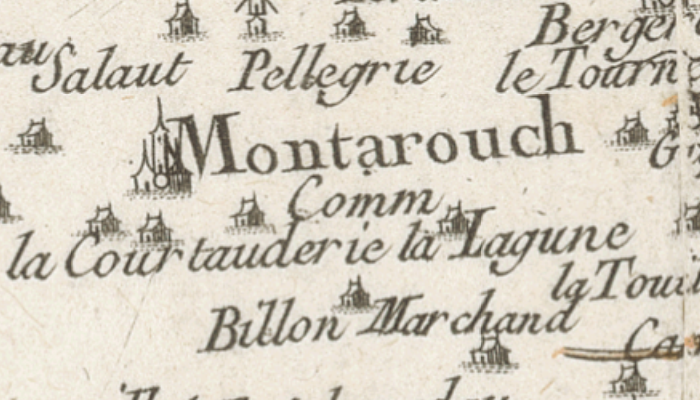 Salaut Pellegrie le Tourn
Montarouch
Comm
la Courtauderie la Lagune
Billon Marchand